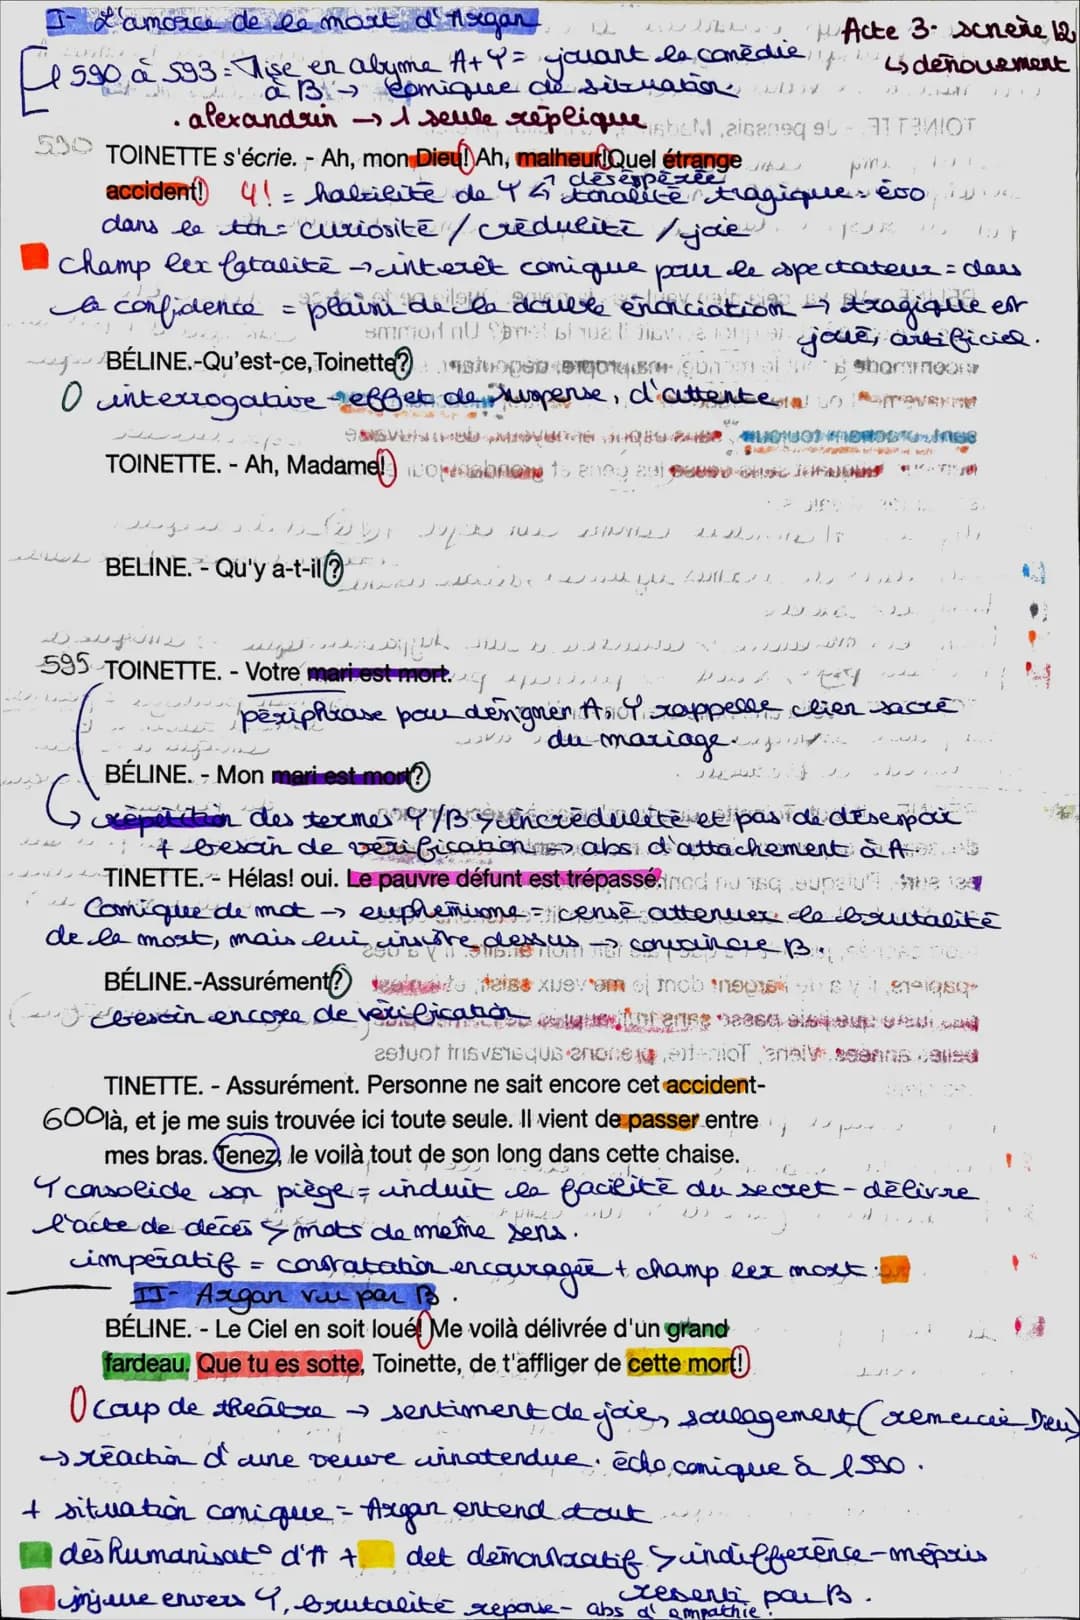 I- L'amorce de la mort d'Argan
Acte 3- scnène 12
↳ dénouement
l 590 à 593 = Mise en abyme A+T = jouant la comédie
à B → comique de situation.
. alexandrin → 1 seule réplique
590
TOINETTE s'écrie. - Ah, mon Dieu! Ah, malheur!Quel étrange
accident! 4! = habilité de T désespérée tonalité tragique = évo
dans le ton = curiosité / crédulité / joie
champ lex fatalité → interêt comique pour le spectateur = dans
la confidence = plaisir de la double énonciation → tragique est
joué, artificiel.
BÉLINE.-Qu'est-ce, Toinette?
interrogative - effet de suspense, d'attente
TOINETTE. - Ah, Madame!
BELINE. - Qu'y a-t-il?
595 TOINETTE. - Votre mari est mort.
périphrase pour désigner A, T rappelle lien sacré
du mariage.
BÉLINE. - Mon mari est mort?
↳ répétition des termes T/B → incrédulité et pas de désespoir
+ besoin de vérification → abs d'attachement à A.
TINETTE. - Hélas! oui. Le pauvre défunt est trépassé.
Comique de mot → euphémisme = censé attenuer la brutalité
de la mort, mais lui insiste dessus → convaincre B.
BÉLINE.-Assurément?
besoin encore de vérification
TINETTE. - Assurément. Personne ne sait encore cet accident-
600 là, et je me suis trouvée ici toute seule. Il vient de passer entre
mes bras. Tenez, le voilà tout de son long dans cette chaise.
T consolide son piège = induit la facilité du secret - délivre
l'acte de décès → mots de même sens.
impératif = constatation encouragée + champ lex mort
II- Argan vu par B.
BÉLINE. - Le Ciel en soit loué! Me voilà délivrée d'un grand
fardeau. Que tu es sotte, Toinette, de t'affliger de cette mort!
coup de théâtre → sentiment de joie, soulagement (remercie Dieu)
→ réaction d'une veuve innatendue. écho comique à l 590.
+ situation comique = Argan entend tout
déshumanisat° d'A + det démonstratif → indifférence - mépris
resenti par B.
injure envers T, brutalité reponse - abs d'empathie.